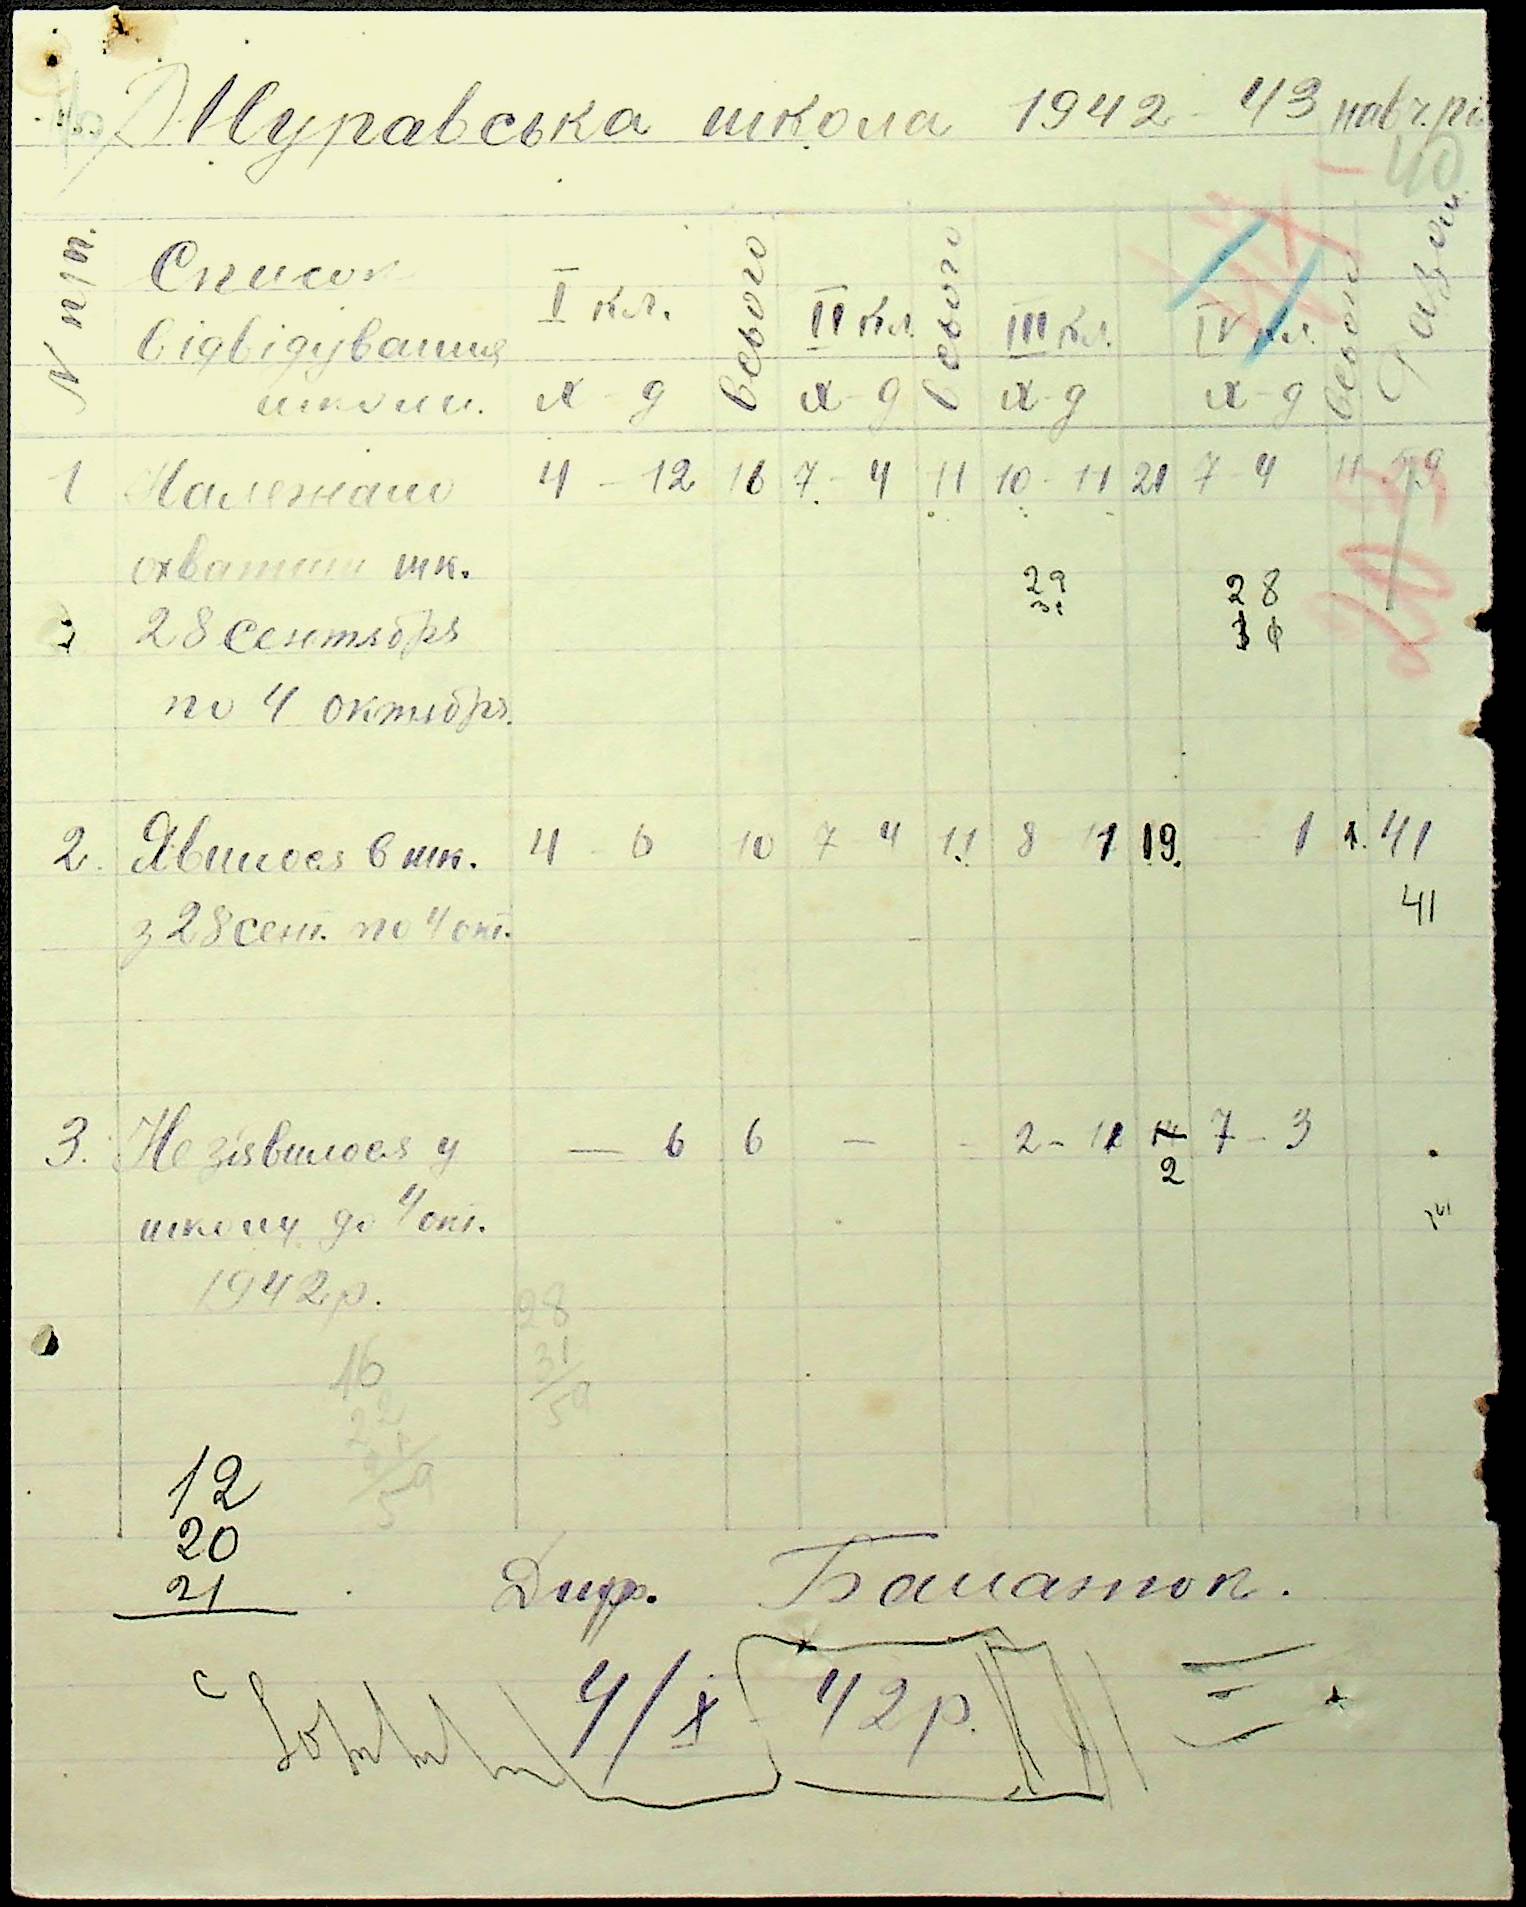 Муравська школа 1942 - 43 навч. рік
40
N п/п. Список відвідування школи. I кл. всього II кл. всього III кл. IV кл. всього Разом
х - д х - д х - д х - д
1 Належало 4 - 12 16 7 - 4 11 10 - 11 21 7 - 4 11 59
охватити шк. 29 28
28 сентября 31 31
по 4 октября.
2. Явилося в шк. 4 - 6 10 7 4 11 8 11 19. - 1 1. 41
з 28 сент. по 4 окт. 41
3. Не зʼявилося у — 6 6 — - 2 - 7 - 3
2
школу до 4 окт.
1942 р.
28
31
59
16
12
20
21
Дир. Баматок.
4/X - 42 р.